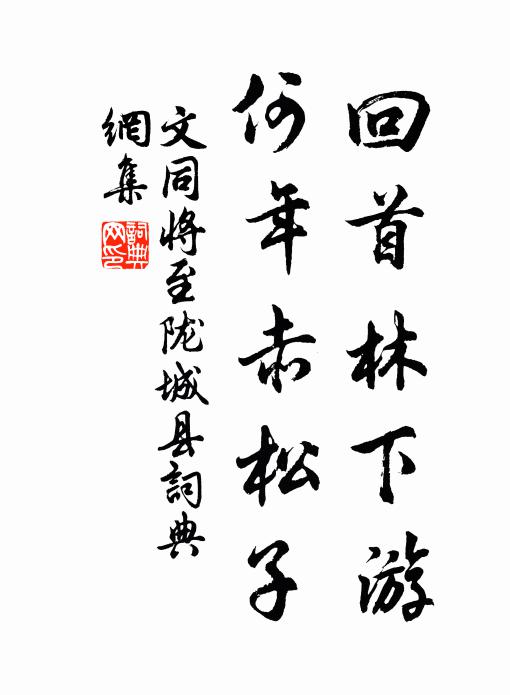 回首林下游
何年赤松子
文同将至陇城县詞典
網集
詞典
网印